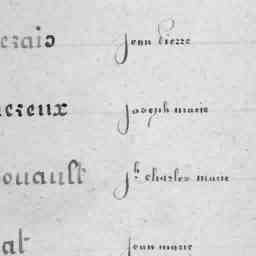 ezais Jean Pierre
hereux Joseph marie
ouault Jh charles marie
at Jean marie